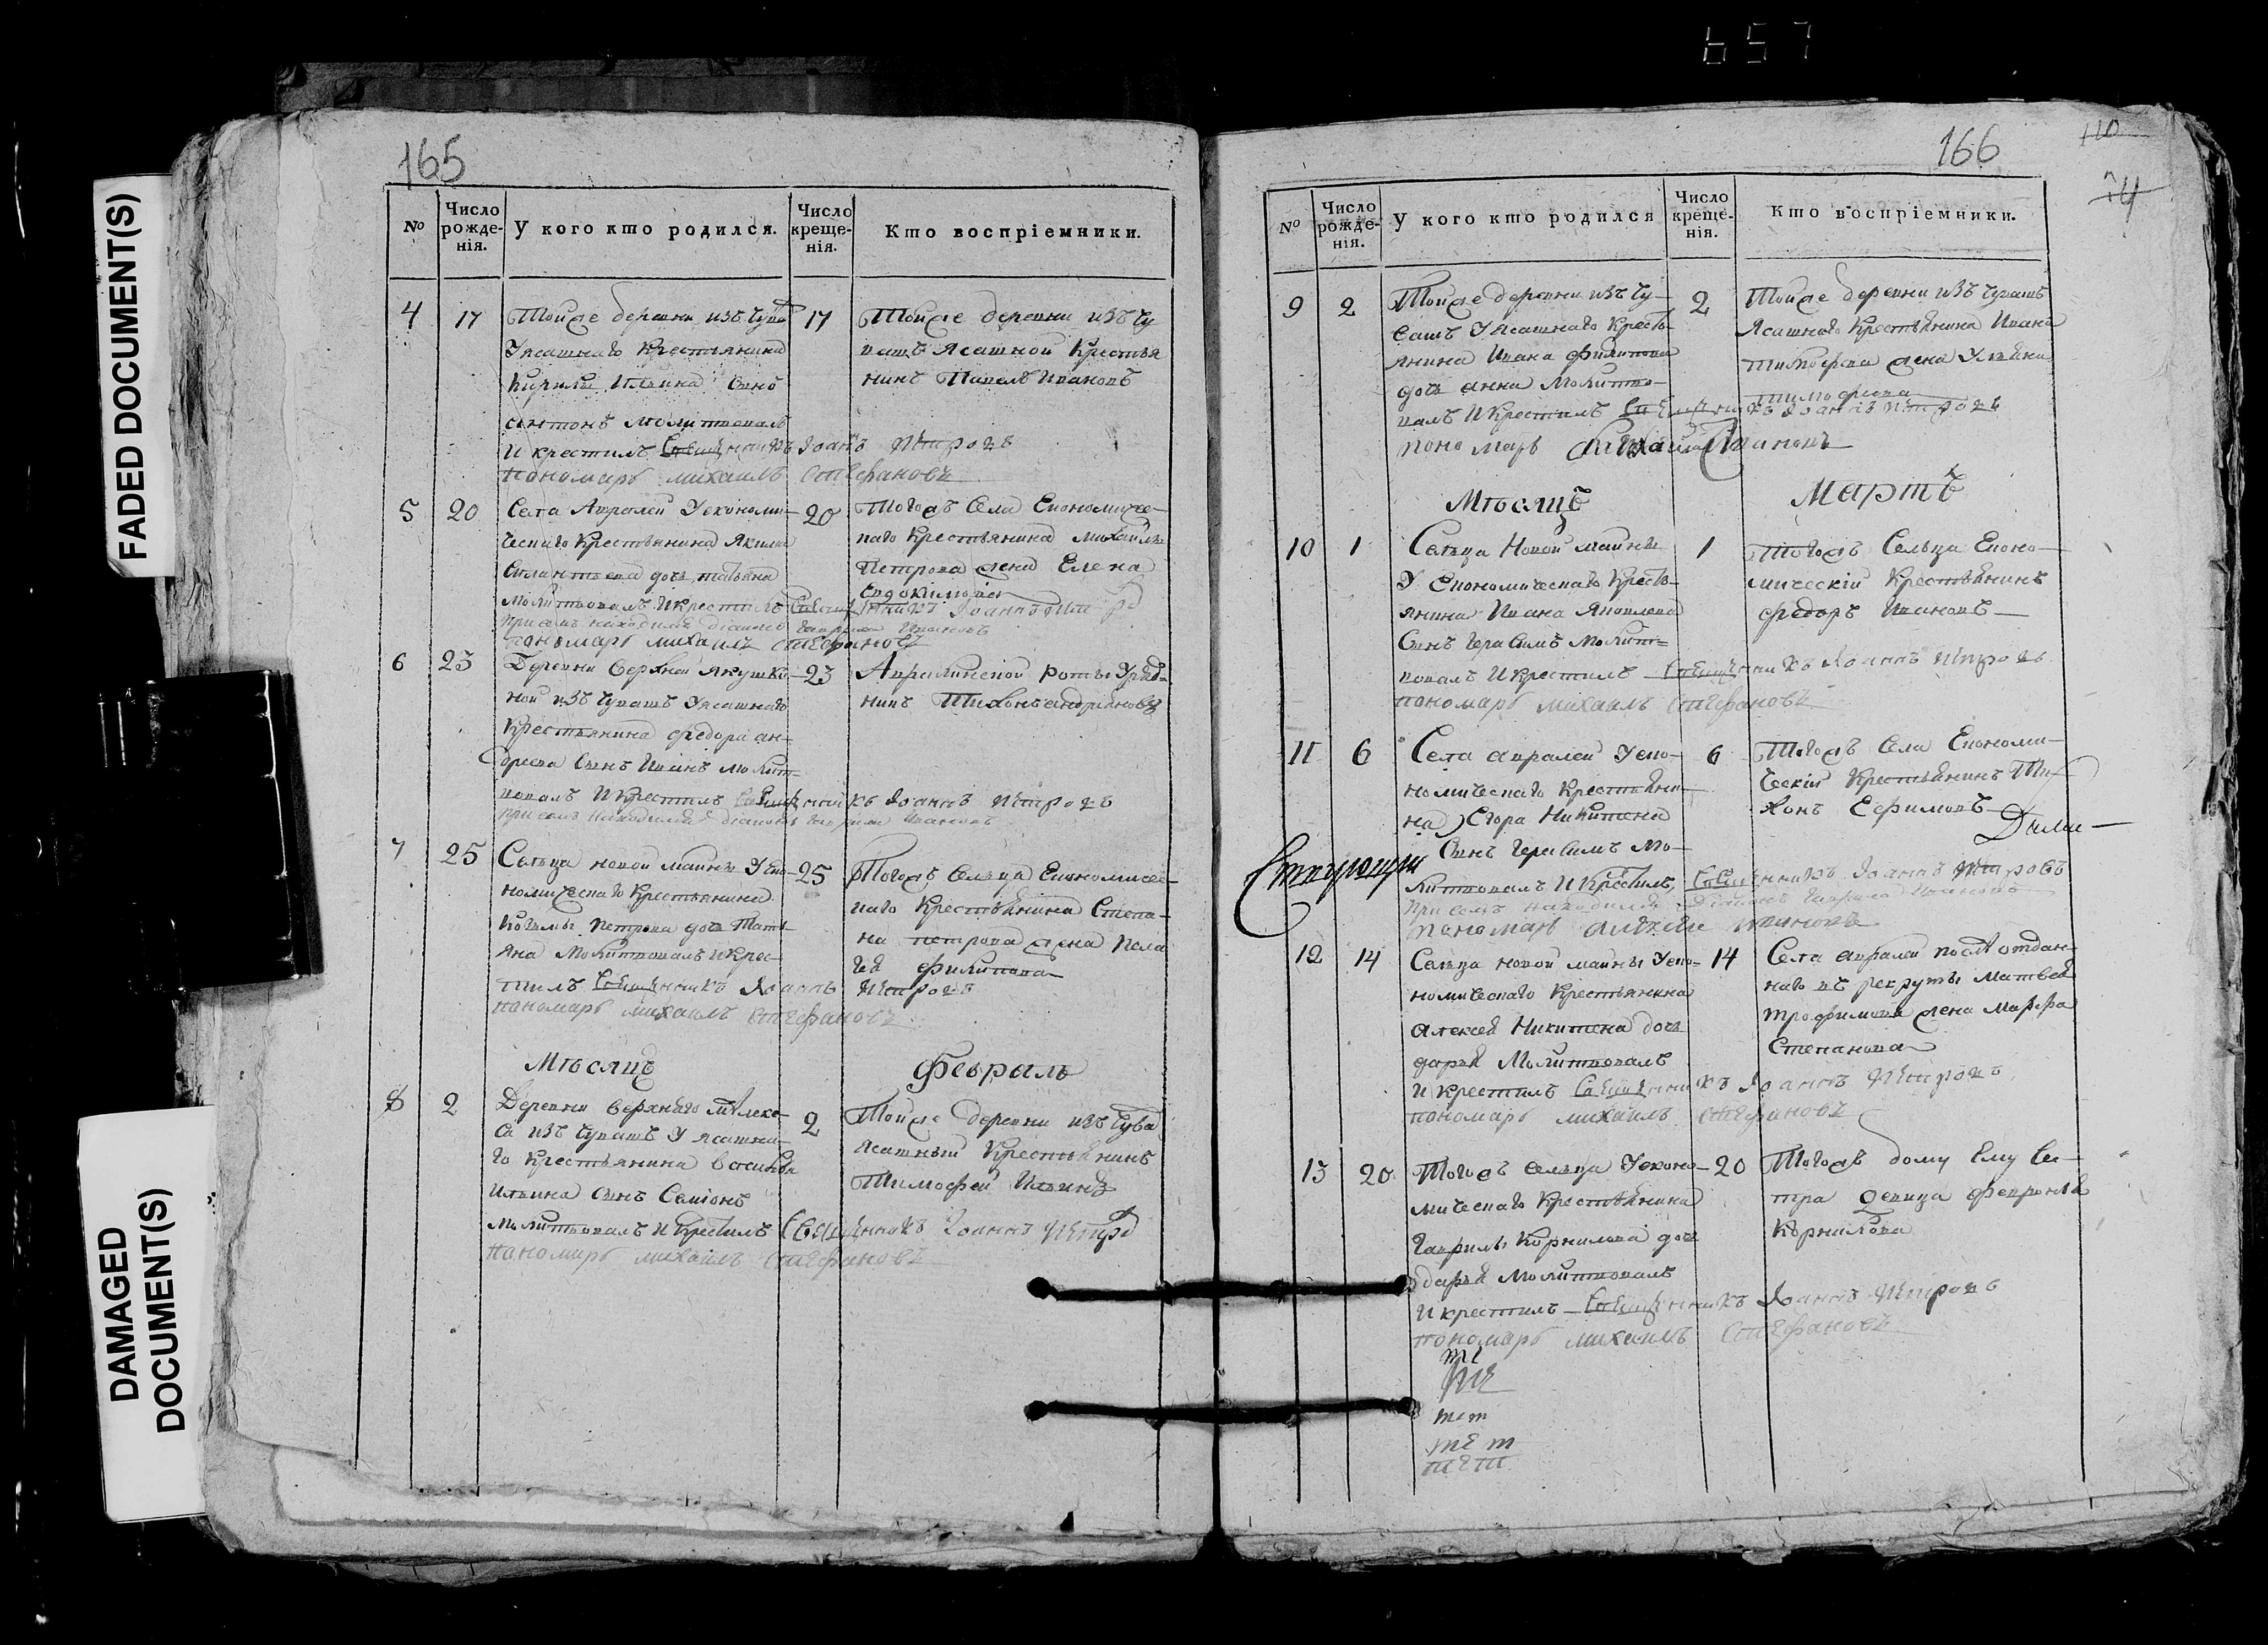 657
FADED DOCUMENT(S)
DAMAGED DOCUMENT(S)
165
№
Число рожде-нія.
У кого кто родился.
Число креще-нія.
Кто воспріемники.
4 17 Тойже деревни изъ Чува 17
Уясашнаго крестьянина
Кирилы Ильина сынъ
антонъ молитвовалъ
И крестилъ Священникъ Іоаннъ Петровъ
пономарь михаилъ Стефановъ
Тойже деревни изъ Чу
вашъ Ясашной Крестья
нинъ Павелъ Ивановъ
5 20 Села Авралей Уекономи- 20
ческаго Крестьянина
дочь татьяна
Молитвовалъ Икрестилъ Священникъ Іоаннъ
при семъ находился діаконъ Гаврила Ивановъ
пономарь михаилъ Стефановъ
Тогожъ Села Економиче-
каго Крестьянина Михаилы
Петрова жена Елена
Евдокимова
6 23 Деревни Верхней Якушки- 23
ной изъ Чувашъ Уясашнаго
Крестьянина федора ан-
дреева Сынъ Иванъ молит-
вовалъ И Крестилъ Священникъ Іоаннъ Петровъ
при семъ находился діаконъ Гаврила Ивановъ
Авралинской роты
Тихонъ андріановъ
7 25 Сельца новой майны УЕко- 25
номическаго Крестьянина
Козьмы Петрова дочь Тать-
яна Молитвовалъ икрес-
тилъ Священникъ Іоаннъ Петровъ
пономарь михаилъ Стефановъ
Тогожъ Сельца Економиче-
каго Крестьянина Степа-
на петрова жена пела
гея филипова
Мѣсяцъ Февраль
8 2 Деревни Верхняго Мелеке- 2
са изъ Чувашъ У ясашна-
го Крестьянина Василья
Ильина Сынъ Семіонъ
Молитвовалъ И Крестилъ Священникъ Іоаннъ Петро
пономарь михаилъ Стефановъ
Тойже деревни изъ Чува
Ясашный Крестьянинъ
Тимофей Ильинъ
166
110
№
Число рожде-нія.
У кого кто родился
Число креще-нія.
Кто воспріемники.
9 2 Тойже деревни изъ Чу- 2
вашъ Уясашнаго Кресть-
янина Ивана филипова
дочь анна Молитво-
валъ И Крестилъ Священникъ Іоаннъ Петровъ
пономарь
Тойже деревни изъ Чувашъ
Ясашнаго Крестьянина Ивана
Тимофеева жена Ульяна
тимофеева
Мѣсяцъ Мартъ
10 1 Сельца Новой майны 1
У Економическаго Кресть-
янина Ивана Яковлева
Сынъ герасимъ Молит-
вовалъ И Крестилъ Священникъ Іоаннъ Петровъ
пономарь михаилъ Стефановъ
Тогожъ Сельца Еконо-
мическій Крестьянинъ
федоръ Ивановъ
11 6 Села авралей Уеко- 6
номическаго Крестьяни-
на Егора Никитина
Сынъ герасимъ Мо-
литвовалъ И Крестилъ, Священникъ Іоаннъ Петровъ
при семъ находился Діаконъ Гаврила Ивановъ
пономарь алексей ивановъ
Тогожъ Села Економи-
ческій Крестьянинъ Ти-
хонъ Ефимовъ
12 14 Сельца новой майны Уеко- 14
номическаго Крестьянина
алексея Никитина дочь
дарья Молитвовалъ
И крестилъ Священникъ Іоаннъ Петровъ
пономарь михаилъ Стефановъ
Села авралей после отдан-
наго въ рекруты Матвея
трофимова жена Марфа
Степанова
13 20 Тогожъ сельца Уеконо- 20
мическаго Крестьянина
Гаврилы Корнилова дочь
дарья Молитвовалъ
И крестилъ Священникъ Іоаннъ Петровъ
пономарь михаилъ Стефановъ
Тогожъ дому Ему Се-
тра девица февронья
Корнилова